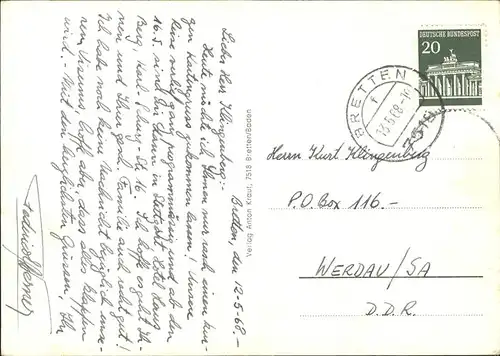 Bretten, den 12-5-68.-
Lieber Herr Klingenberg:-
Heute möchte ich Ihnen nur rasch einen kur-
zen Kartengruss zukommen lassen! Unsere
Reise verlief ganz programmässig und ab den
16.5. sind wir dann in Stuttgart
Berg, Karl- Str. 16. Ich hoffe es geht Ih-
nen und Ihrer gesch. Familie auch recht gut!
Ich habe noch keine Nachricht bezüglich mei-
nem Visums, hoffe aber, dass alles klappen
wird. Mit den herzlichsten Grüssen, Ihr
Verlag Anton Kraut, 7518 Bretten/Baden
DEUTSCHE BUNDESPOST
20
BRETTEN
f
7518
Herrn Kurt Klingenberg
P.O. Box 116.-
WERDAU/SA
D.D.R.